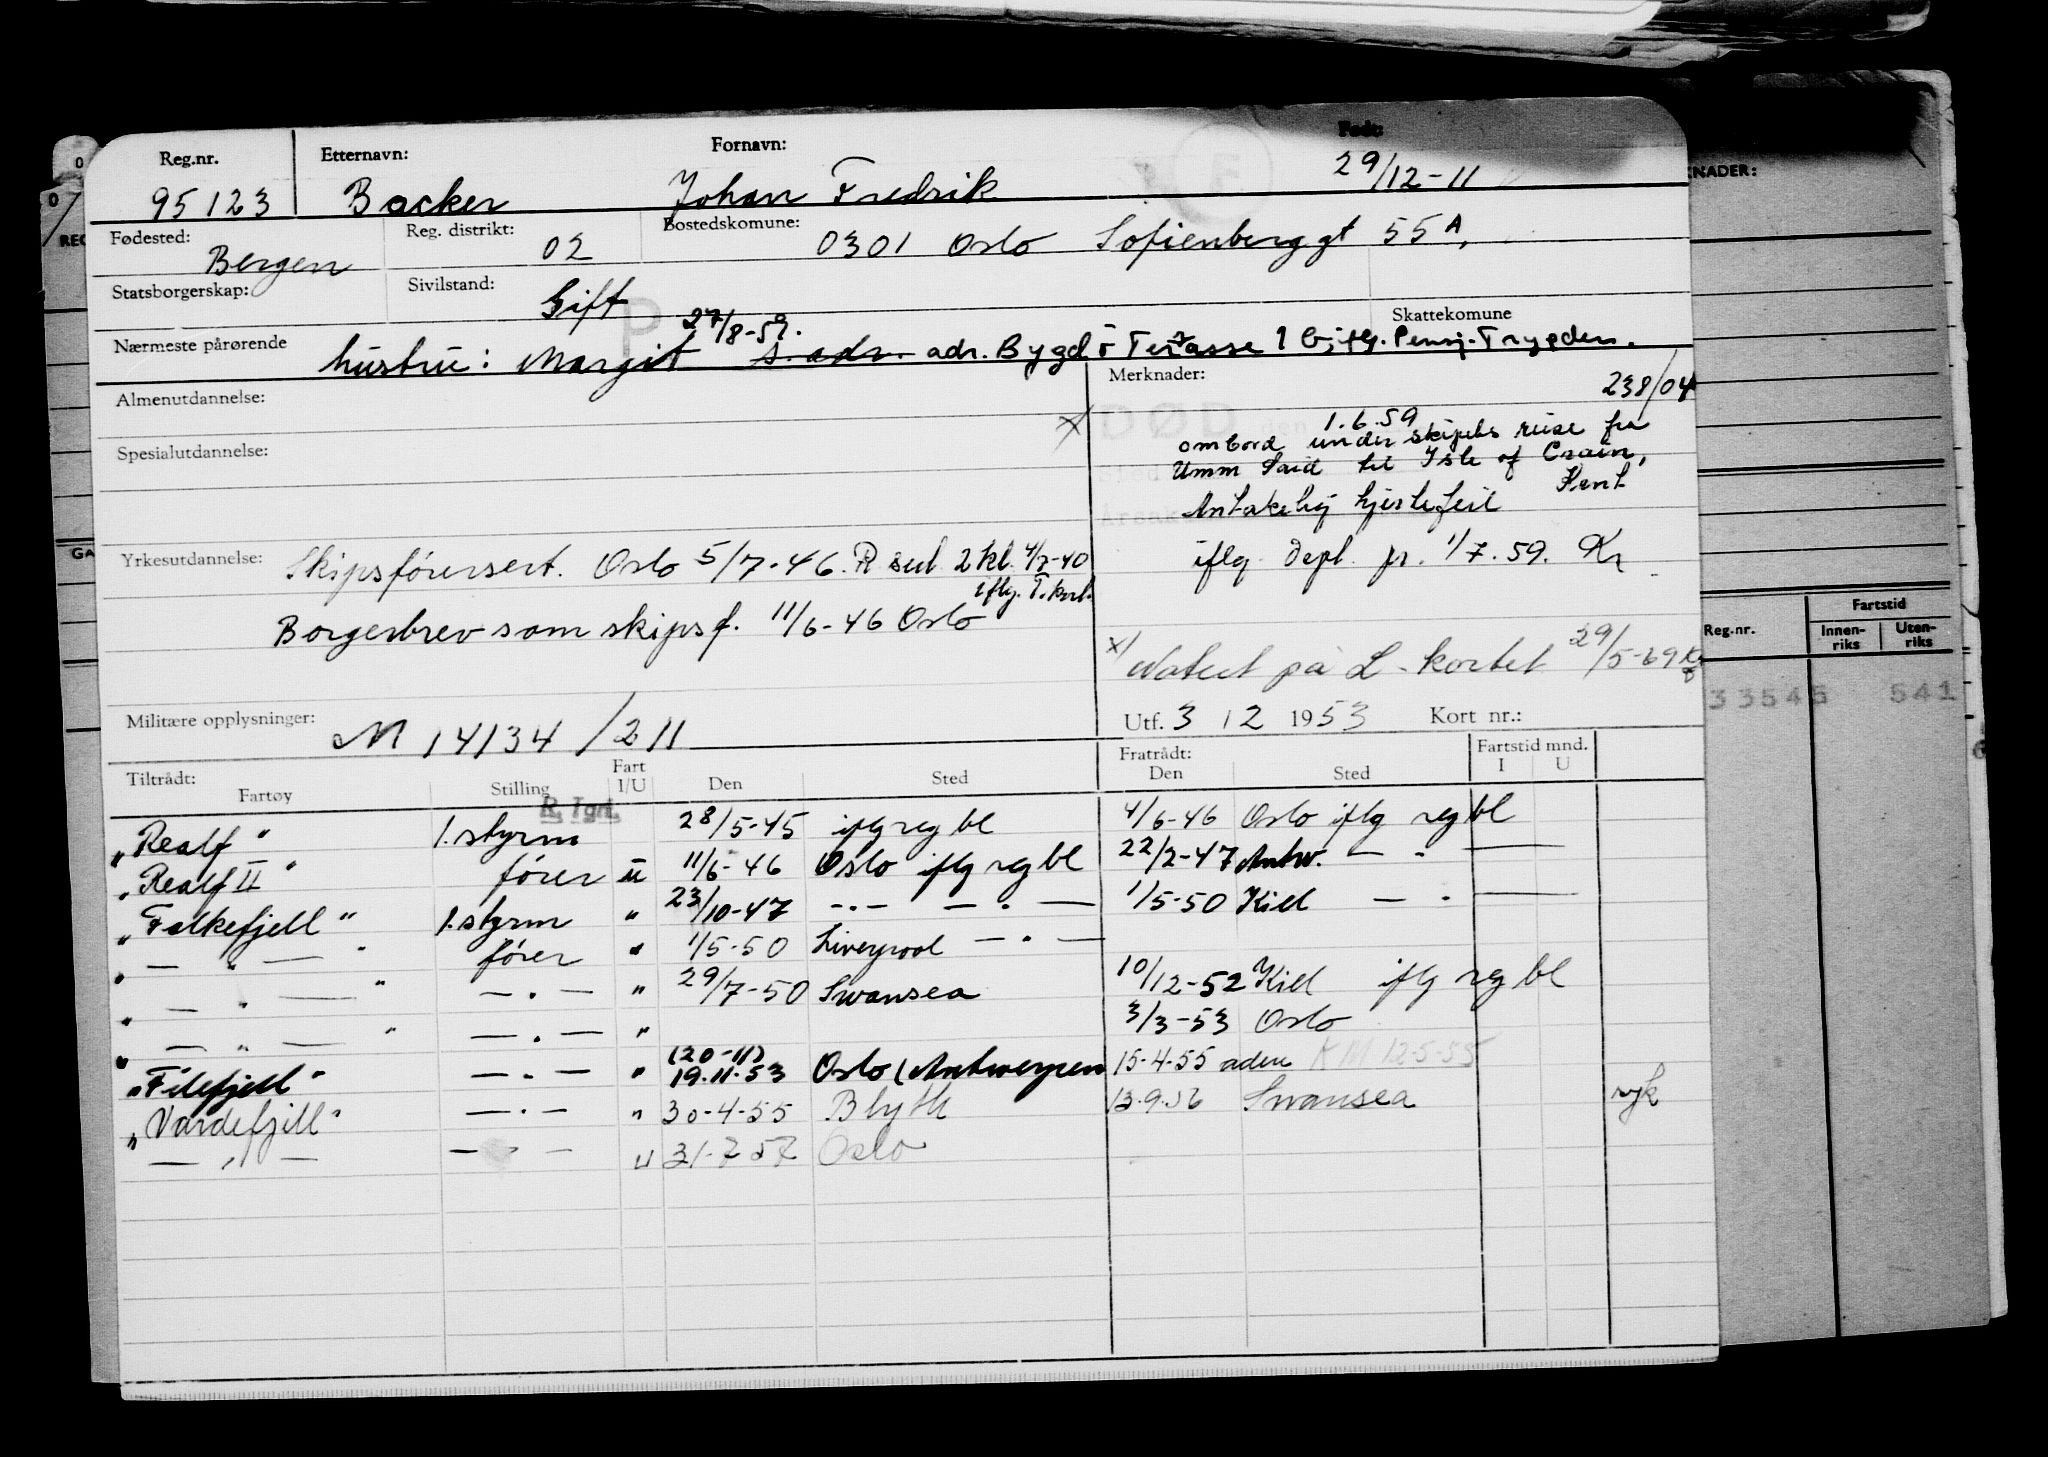 Reg.nr. Etternavn: Fornavn: Født:
95123 Backer Johan Fredrik 29/12-11
Fødested: Reg. distrikt: Bostedskomune:
Bergen 02 0301 Oslo Sofienberggt 55A,
Statsborgerskap: Sivilstand: Skattekomune
Gift
27/8-59.
Nærmeste pårørende hustru: Margit s. adr. adr. Bygdö Terasse 1 iflg. Pensj. Trygden.
Almenutdannelse: Merknader: 238/04
x/ DØD den 1.6.59
ombord under skipets reise fra
Spesialutdannelse: Umm Said til Isle of Crain,
Kent
Antakelig hjertefeil
Yrkesutdannelse: Skipsførersert. Oslo 5/7-46. R sert. 2 kl. 4/7-40
iflg. T.kort.
iflg. Dept. pr. 1/7.59. Kr
Borgerbrev som skipsf. 11/6-46 Oslo
x/ Notert på L-kortet 29/5-69
Militære opplysninger: M 14134/211
Utf. 3 12 1953 Kort nr.:
Tiltrådt: Fart Fratrådt: Fartstid mnd.
Fartøy Stilling I/U Den Sted Den Sted I U
R. Tgrt.
"Realf" 1. styrm 28/5-45 iflg reg bl 4/6-46 Oslo iflg reg bl
"Realf II" fører u 11/6-46 Oslo iflg reg bl 22/2-47 Antw. — " —
"Falkefjell" 1. styrm " 23/10-47 —.— —.— 1/5-50 Kiel — . —
" — " — " fører " 1/5-50 Liverpool —.—
" — " — " —.— " 29/7-50 Swansea 10/12-52 Kiel iflg reg bl
" — " — " —.— " 3/3-53 Oslo
"Filefjell" —.— " (20-11) 19.11.53 Oslo (Antwerpen 15-4-55 aden KM 12-5-55
"Vardefjell" —.— " 30-4-55 Blyth 13.9.56 Swansea syk
— " — — — u 31-7 57 Oslo
KNADER:
REG
GA
Reg.nr. Fartstid
Innen-riks Uten-riks
33545 541